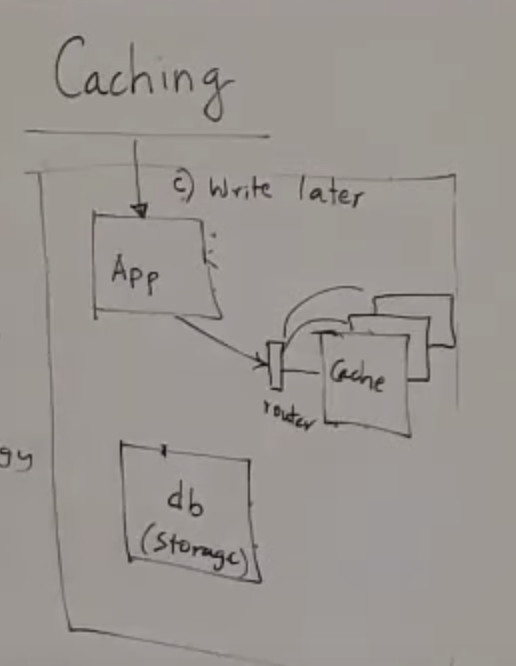 Caching
c) Write later
App
Cache
router
gy
db
(storage)